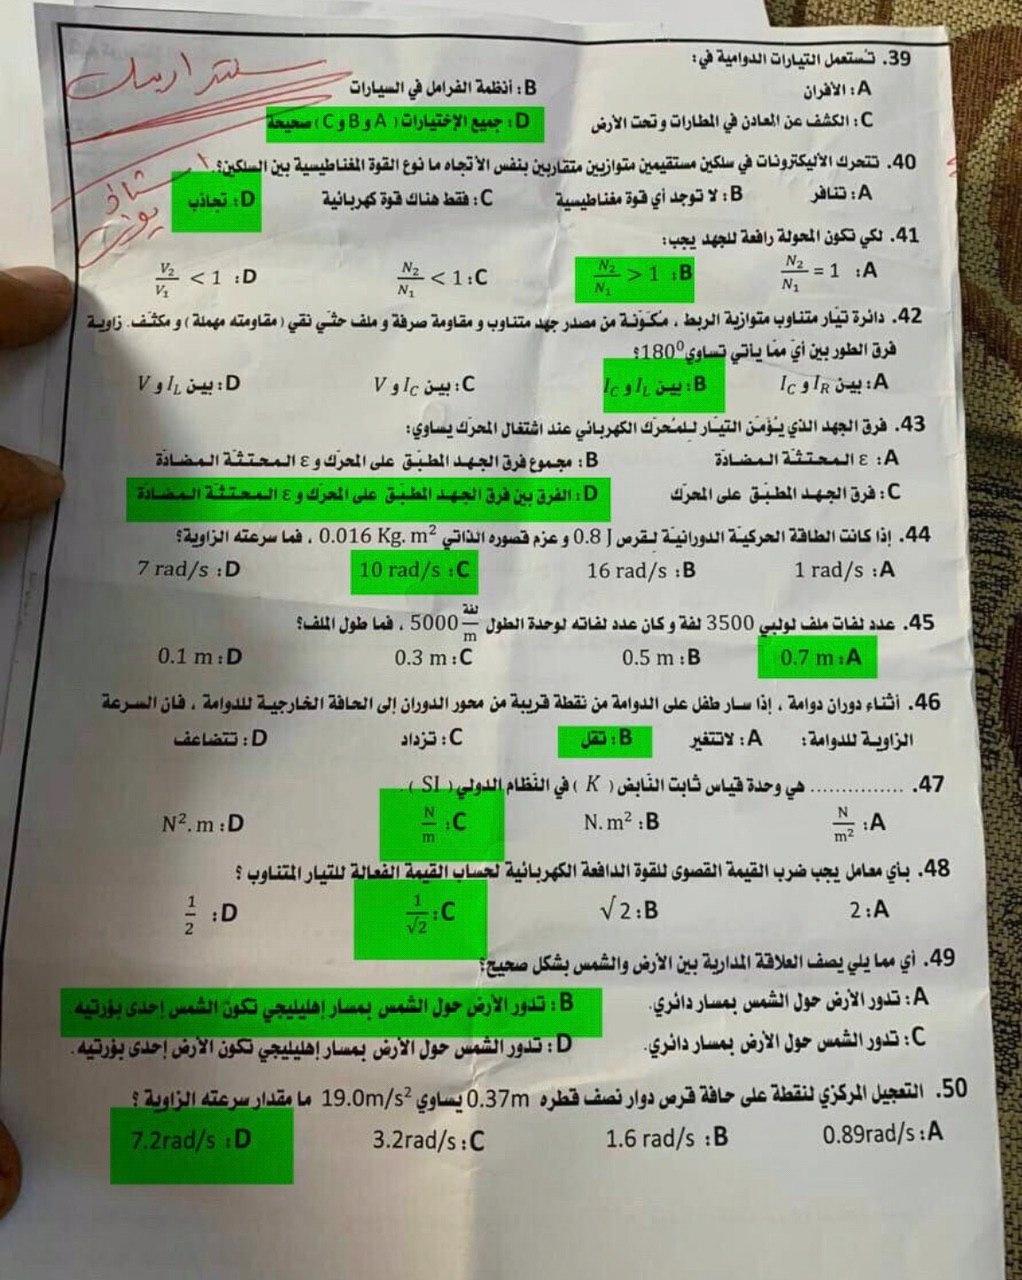 39. تستعمل التيارات الدوامية في:
A: الأفران B: أنظمة الفرامل في السيارات
C: الكشف عن المعادن في المطارات وتحت الأرض D: جميع الإختيارات (A و B و C) صحيحة
40. تتحرك الأليكترونات في سلكين مستقيمين متوازيين متقاربين بنفس الأتجاه ما نوع القوة المغناطيسية بين السلكين؟
A: تنافر B: لا توجد أي قوة مغناطيسية C: فقط هناك قوة كهربائية D: تجاذب
41. لكي تكون المحولة رافعة للجهد يجب:
A: N₂/N₁ = 1 B: N₂/N₁ > 1 C: N₂/N₁ < 1 D: V₂/V₁ < 1
42. دائرة تيّار متناوب متوازية الربط ، مكوّنة من مصدر جهد متناوب و مقاومة صرفة و ملف حثّي نقي (مقاومته مهملة) و مكثّف. زاوية
فرق الطور بين أيّ ممّا يأتي تساوي 180⁰؟
A: بين I_R و I_C B: بين I_L و I_C C: بين I_C و V D: بين I_L و V
43. فرق الجهد الذي يُؤمّن التيّار للمُحرّك الكهربائي عند اشتغال المحرّك يساوي:
A: ε المحتثّة المضادّة B: مجموع فرق الجهد المطبّق على المحرّك و ε المحتثّة المضادّة
C: فرق الجهد المطبّق على المحرّك D: الفرق بين فرق الجهد المطبّق على المحرّك و ε المحتثّة المضادّة
44. إذا كانت الطاقة الحركيّة الدورانيّة لقرص 0.8 J و عزم قصوره الذاتي 0.016 Kg. m² ، فما سرعته الزاوية؟
A: 1 rad/s B: 16 rad/s C: 10 rad/s D: 7 rad/s
45. عدد لفات ملف لولبي 3500 لفة و كان عدد لفاته لوحدة الطول 5000 لفة/m ، فما طول الملف؟
A: 0.7 m B: 0.5 m C: 0.3 m D: 0.1 m
46. أثناء دوران دوامة ، إذا سار طفل على الدوامة من نقطة قريبة من محور الدوران إلى الحافة الخارجية للدوامة ، فان السرعة
الزاوية للدوامة: A: لاتتغير B: تقل C: تزداد D: تتضاعف
47. .............. هي وحدة قياس ثابت النّابض ( K ) في النّظام الدولي ( SI ) .
A: N/m² B: N. m² C: N/m D: N². m
48. بأي معامل يجب ضرب القيمة القصوى للقوة الدافعة الكهربائية لحساب القيمة الفعالة للتيار المتناوب ؟
A: 2 B: √2 C: 1/√2 D: 1/2
49. أي مما يلي يصف العلاقة المدارية بين الأرض والشمس بشكل صحيح؟
A: تدور الأرض حول الشمس بمسار دائري. B: تدور الأرض حول الشمس بمسار إهليليجي تكون الشمس إحدى بؤرتيه
C: تدور الشمس حول الأرض بمسار دائري. D: تدور الشمس حول الأرض بمسار إهليليجي تكون الأرض إحدى بؤرتيه.
50. التعجيل المركزي لنقطة على حافة قرص دوار نصف قطره 0.37m يساوي 19.0m/s² ما مقدار سرعته الزاوية ؟
A: 0.89rad/s B: 1.6 rad/s C: 3.2rad/s D: 7.2rad/s